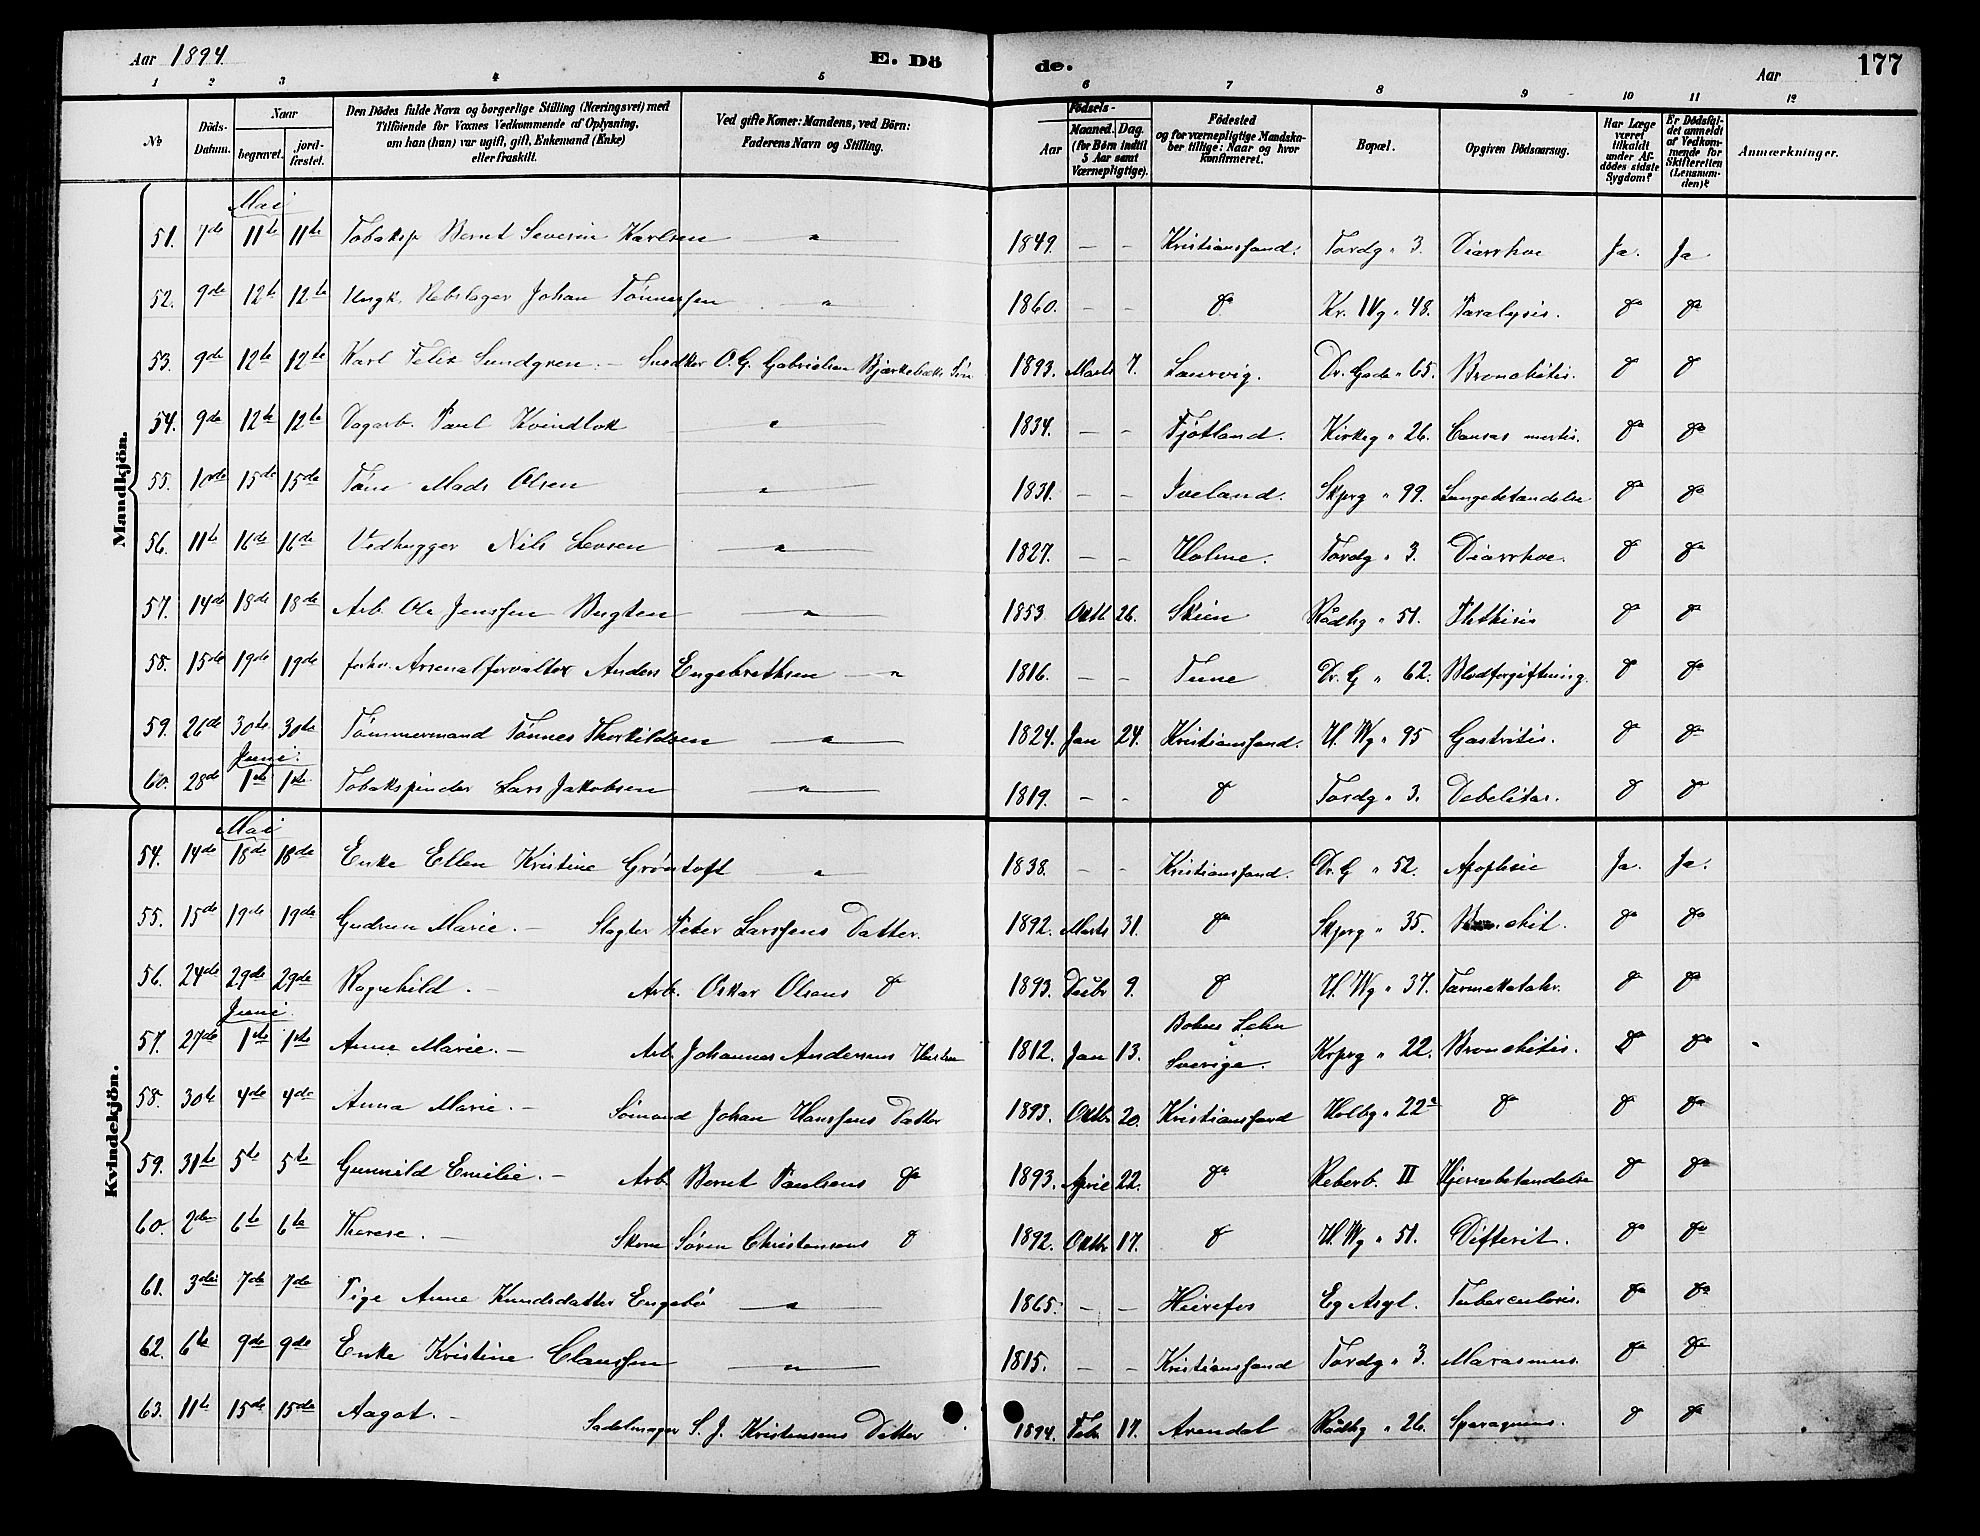 Aar 1894 E. Dö de. Aar 177
1 2 3 4 5 6 7 8 9 10 11 12
No Döds-Datum. Naar begravet. jordfæstet. Den Dödes fulde Navn og borgerlige Stilling (Næringsvei) med Tilföiende for Voxnes Vedkommende af Oplysning, om han (hun) var ugift, gift, Enkemand (Enke) eller fraskilt. Ved gifte Koner: Mandens, ved Börn: Faderens Navn og Stilling. Födsels- Aar Maaned. Dag. (for Börn indtil 5 Aar samt Værnepligtige). Födested og for værnepligtige Mandskaber tillige: Naar og hvor konfirmeret. Bopæl. Opgiven Dödsaarsag. Har Læge været tilkaldt under Afdödes sidste Sygdom? Er Dödsfaldet anmeldt af Vedkommende for Skifteretten (Lensmanden)? Anmærkninger.
Mandkjön.
Mai
51. 7de 11te 11te Tobaksp Bernt Severin Karlsen " 1849. - - Kristianssand. Tordg " 3. Diarrhoe Ja. Ja.
52. 9de 12te 12te Ungk. Rebslager Johan Tönnessen " 1860. - - do Kr. IVg " 48. Paralysis. do do
53. 9de 12te 12te Karl Felix Sundgren. - Snedker O. G. Gabrielsen Bjærkebæks Sön 1893. Marts 7. Laurvig. Dr. Gade " 65. Bronchitis. do do
54. 9de 12te 12te Dagarb. Paul Kvindlok " 1834. - - Fjotland. Kirkeg " 26. Causas mortis. do do
55. 10de 15de 15de Töm Mads Olsen " 1831. - - Iveland. Skprg " 99. Lungebetændelse do do
56. 11te 16de 16de Vedhugger Nils " 1827. - - Holme. Tordg " 3. Diarrhoe. do do
57. 14de 18de 18de Arb. Ole Jenssen Bugten " 1853 Oktb. 26. Skien Rådhg " 51. Phthisis do do
58. 15de 19de 19de forhv. Arsenalforvalter Anders Engebrethsen " 1816. - - Tune Dr. G " 62. Blodforgiftning. do do
59. 26de 30te 30te Tömmermand Tönnes Therkildsen " 1824. Jan 24. Kristianssand. V. Wg " 95 Gastritis. do do
Juni.
60. 28de 1ste 1ste Tobakspinder Lars Jakobsen " 1819. - - do Tordg " 3. Debelitas. do do
Kvindekjön.
Mai
54. 14de 18de 18de Enke Ellen Kristine Gröstoft " 1838. - - Kristianssand. Dr. G " 52. Apoplesie Ja. Ja.
55. 15de 19de 19de Gudrun Marie. - Slagter Peter Larssens Datter. 1892. Marts 31. do Skprg " 35. Bronchit. do do
56. 24de 29de 29de Ragnhild. - Arb. Oskar Olsens do 1893. Decbr 9. do V. Wg " 37. Tarmekatahr. do do
Juni.
57. 27de 1ste 1ste Anna Marie. - Arb. Johannes Andersens Hustru 1812. Jan 13. Bohus Lehn i Sverige. Krprg " 22. Bronchitis. do do
58. 30te 4de 4de Anna Marie. - Sömand Johan Hanssens Datter 1893. Oktbr 20. Kristianssand Holbg " 22a do do do
59. 31te 5te 5te Gunnild Emilie. - Arb. Bernt Paulsens do 1893. April 22. do Reberb. II Hjernebetændelse do do
60. 2den 6te 6te Therese. - Skom Sören Christensens do 1892. Oktbr 17. do V. Wg " 51. Difterit. do do
61. 3die 7de 7de Pige Anne Knudsdatter Engebö " 1865. - - Heirefos Eg Asyl. Tuberculosis. do do
62. 6te 9de 9de Enke Kristine Claussen " 1815. - - Kristianssand Tordg " 3. Marasmus. do do
63. 11te 15de 15de Aagot. - Sadelmager S. J. Kristensens Datter 1894. Feb. 17. Arendal Rådhg " 26. do do